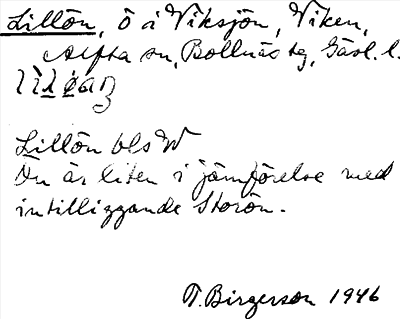 Lillön, ö å Viksjön, Viken,
Alfta sn, Bollnäs tg, Gävl. l.
Lillön bls W
Ön är liten i jämförelse med
intilliggande Storön.
T. Birgerson 1946